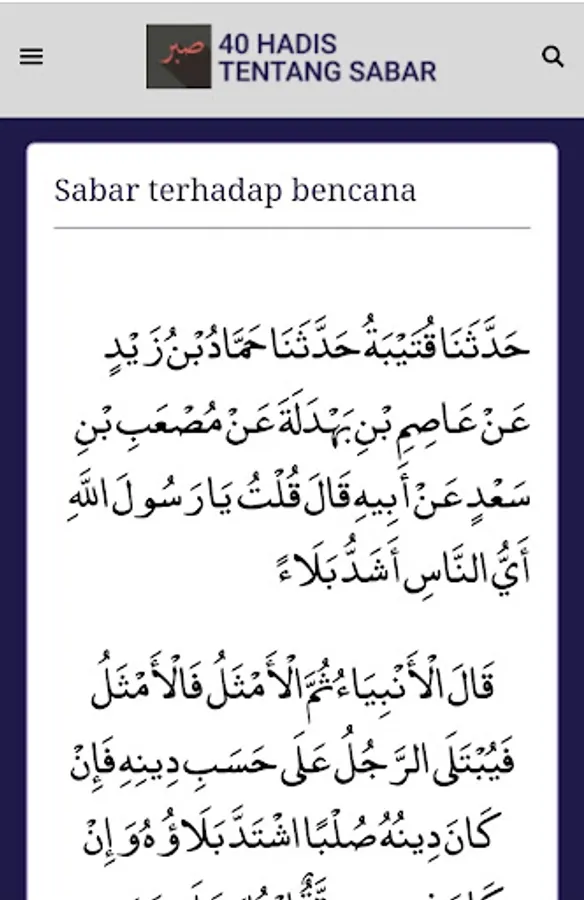 صبر
40 HADIS
TENTANG SABAR
Sabar terhadap bencana
حَدَّثَنَا قُتَيْبَةُ حَدَّثَنَا حَمَّادُ بْنُ زَيْدٍ
عَنْ عَاصِمِ بْنِ بَهْدَلَةَ عَنْ مُصْعَبِ بْنِ
سَعْدٍ عَنْ أَبِيهِ قَالَ قُلْتُ يَا رَسُولَ اللَّهِ
أَيُّ النَّاسِ أَشَدُّ بَلَاءً
قَالَ الْأَنْبِيَاءُ ثُمَّ الْأَمْثَلُ فَالْأَمْثَلُ
فَيُبْتَلَى الرَّجُلُ عَلَى حَسَبِ دِينِهِ فَإِنْ
كَانَ دِينُهُ صُلْبًا اشْتَدَّ بَلَاؤُهُ وَإِنْ